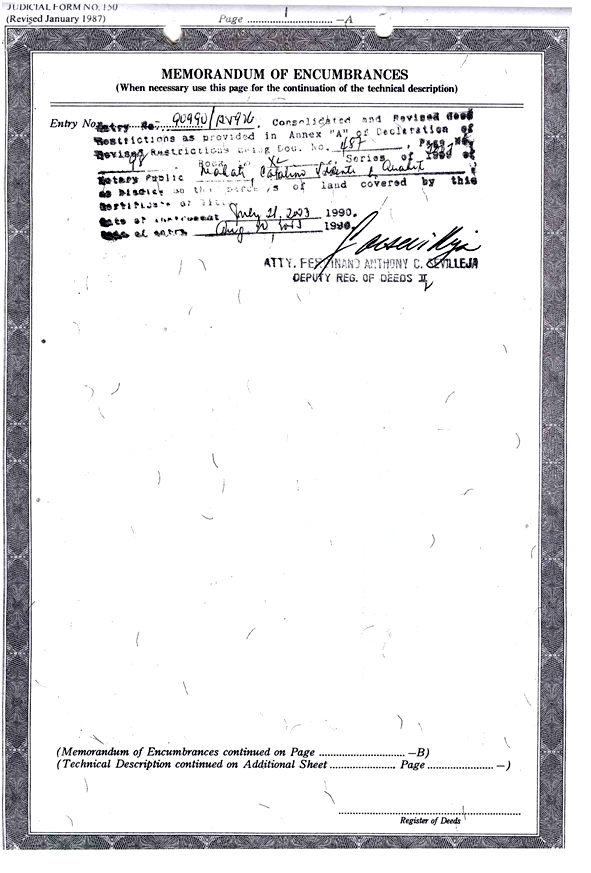 JUDICIAL FORM NO. 150
(Revised January 1987)
Page ............ 1 ............ —A
MEMORANDUM OF ENCUMBRANCES
(When necessary use this page for the continuation of the technical description)
Entry No.
Entry No. 90990/ Consolidated and Revised Deed
Restrictions as provided in Annex "A" of Decleration of
Revised Restrictions being Doc. No. 487, Page No.
98 Book XL, Series of
Notary Public Makati, Catalino Vicente
of land covered by this
Certificate of Title
Date of instrument July 21, 2003 1990.
Date of entry Aug. 20 2003 1990.
ATTY. FERDINAND ANTHONY C. SEVILLEJA
DEPUTY REG. OF DEEDS II
(Memorandum of Encumbrances continued on Page ............ —B)
(Technical Description continued on Additional Sheet ............ Page ............ —)
Register of Deeds